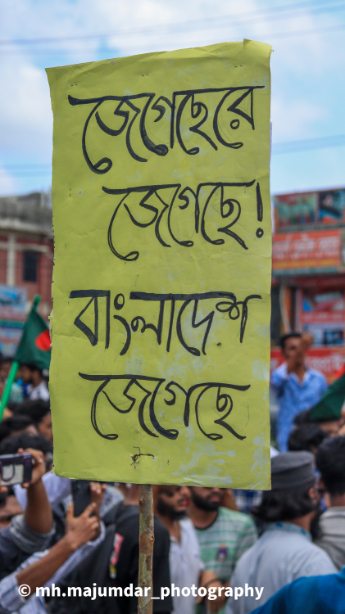 জেগেছেরে
জেগেছে!
বাংলাদেশ
জেগেছে
© mh.majumdar_photography